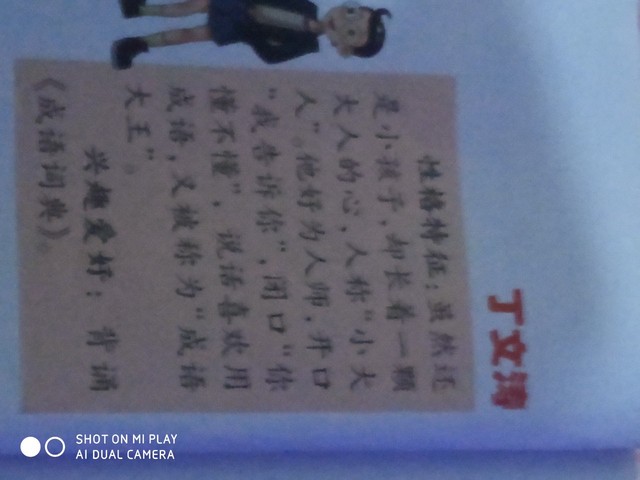 丁文涛
性格特征：虽然还
是小孩子，却长着一颗
大人的心，人称“小大
人”。他好为人师，开口
“我告诉你”，闭口“你
懂不懂”，说话喜欢用
成语，又被称为“成语
大王”。
兴趣爱好：背诵
《成语词典》。
SHOT ON MI PLAY
AI DUAL CAMERA